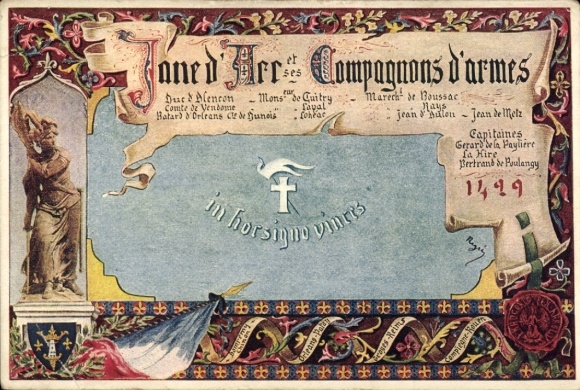 Jane d'Arc et ses Compagnons d'armes
Duc d'Alencon – Monseur de Guitry – Marechl de Boussac
Comte de Vendome – „ Gayat – „ Rays
Batard d'Orleans Cte de Dunois – „ Loheac – Jean d'Aulon – Jean de Metz
Capitaines
Gerard de la Paylière
La Hire
Bertrand de Poulangy
1429
in hoc signo vinces
Orleans